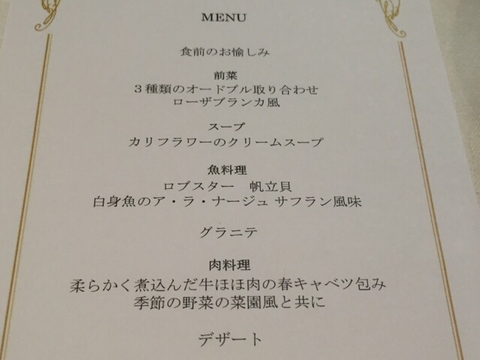 MENU
食前のお愉しみ
前菜
３種類のオードブル取り合わせ
ローザブランカ風
スープ
カリフラワーのクリームスープ
魚料理
ロブスター　帆立貝
白身魚のア・ラ・ナージュ サフラン風味
グラニテ
肉料理
柔らかく煮込んだ牛ほほ肉の春キャベツ包み
季節の野菜の菜園風と共に
デザート